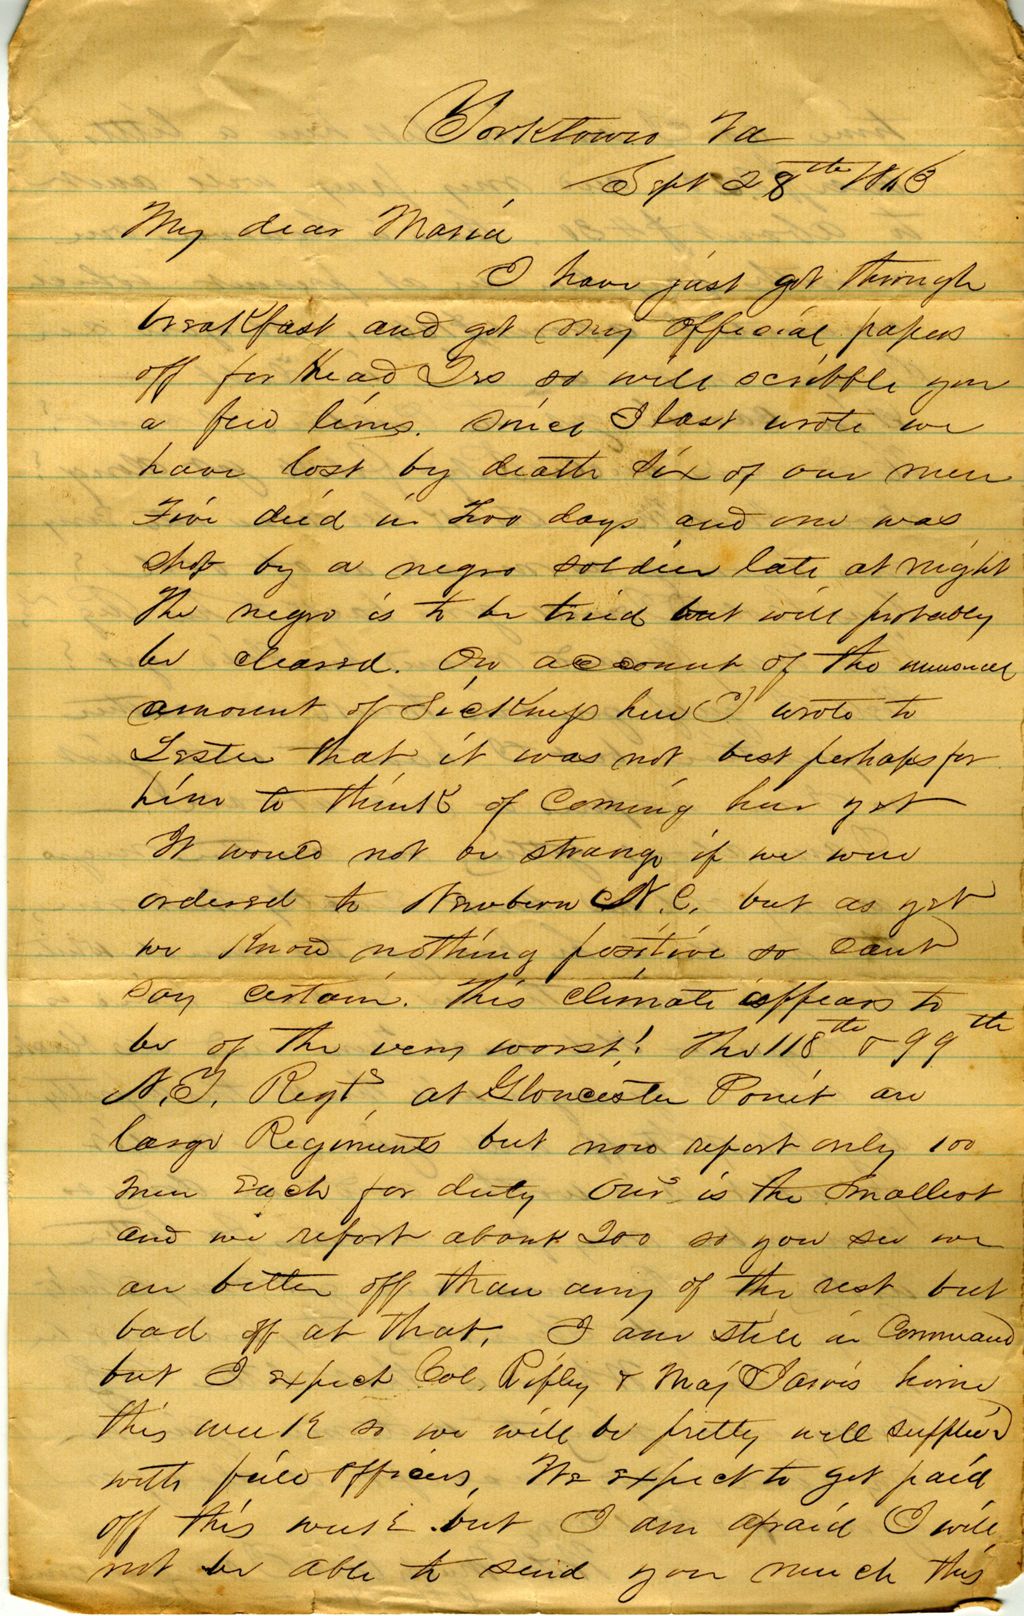 Yorktown Va
Sept 28th 1863
My dear Maria
I have just got through
breakfast and got my official papers
off for Head Qrs so will scribble you
a few lines. Since I last wrote we
have lost by death six of our men
Five died in two days and one was
shot by a negro soldier late at night
The negro is to be tried but will probably
be cleared. On account of the unusual
amount of sickness here I wrote to
Lester that it was not best perhaps for
him to think of coming here yet
It would not be strange if we were
ordered to Newbern N.C. but as yet
we know nothing positive so cant
say certain. This climate appears to
be of the very worst! The 118th & 99th
N.Y. Regts at Gloucester Point are
large Regiments but now report only 100
men each for duty Ours is the smallest
and we report about 200 so you see we
are better off than any of the rest but
bad off at that. I am still in Command
but I expect Col. Ripley & Maj Jarvis home
this week so we will be pretty well supplied
with field officers, We expect to get paid
off this week but I am afraid I will
not be able to send you much this